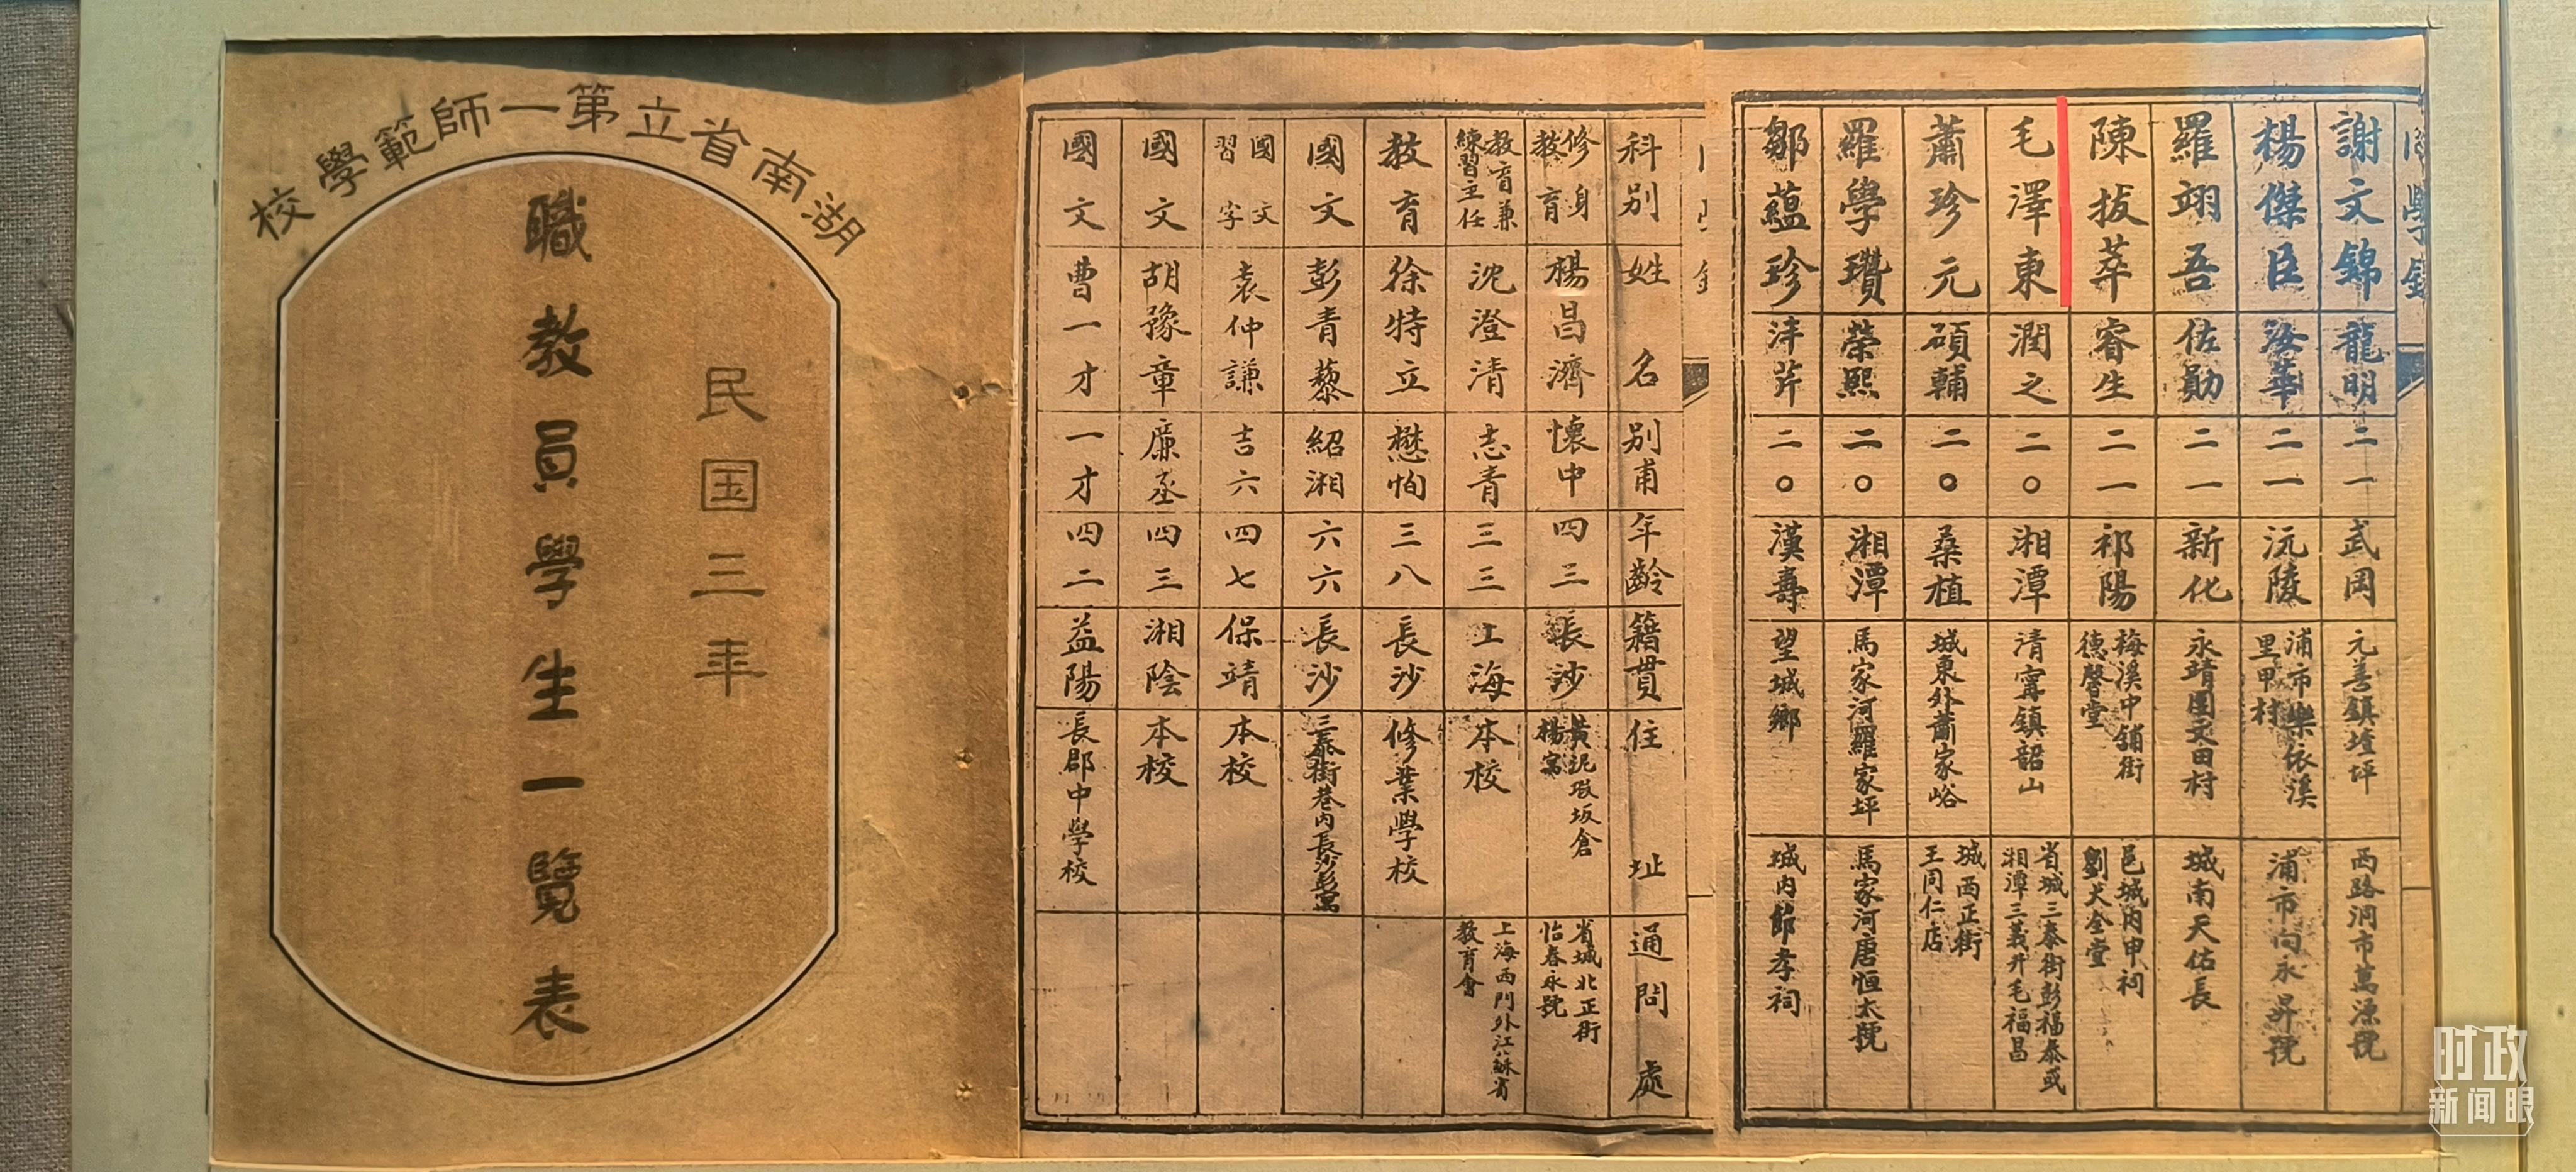 湖南省立第一師範學校
民国三年
職教員學生一覽表
科别 姓名 别甫 年齡 籍貫 住址 通問處
修身教育 楊昌濟 懷中 四三 長沙 黃泥塅坂倉楊寓 省城北正街怡春永號
教育兼練習主任 沈澄清 志青 三三 上海 本校 上海西門外江蘇省教育會
教育 徐特立 懋恂 三八 長沙 修業學校
國文 彭青藜 紹湘 六六 長沙 三泰街巷內長沙彭寓
國文習字 袁仲謙 吉六 四七 保靖 本校
國文 胡豫章 廉丞 四三 湘陰 本校
國文 曹一才 一才 四二 益陽 長郡中學校
同學錄
謝文錦 龍明 二一 武岡 元善鎮 坪 西路洞市萬源號
楊傑臣 海華 二一 沅陵 浦市樂依溪里甲村 浦市向永昇號
羅翊吾 佐勛 二一 新化 永靖團文田村 城南天佑長
陳拔萃 睿生 二一 祁陽 梅溪中舖街德馨堂 邑城內申祠劉大全堂
毛澤東 潤之 二〇 湘潭 清寗鎮韶山 省城三泰街彭福泰或湘潭三義升毛福昌
蕭珍元 碩輔 二〇 桑植 城東外蕭家峪 城西正街王同仁店
羅學瓚 榮熙 二〇 湘潭 馬家河羅家坪 馬家河唐恒太號
鄒蘊珍 泮芹 二〇 漢壽 望城鄉 城內節孝祠
时政
新闻眼